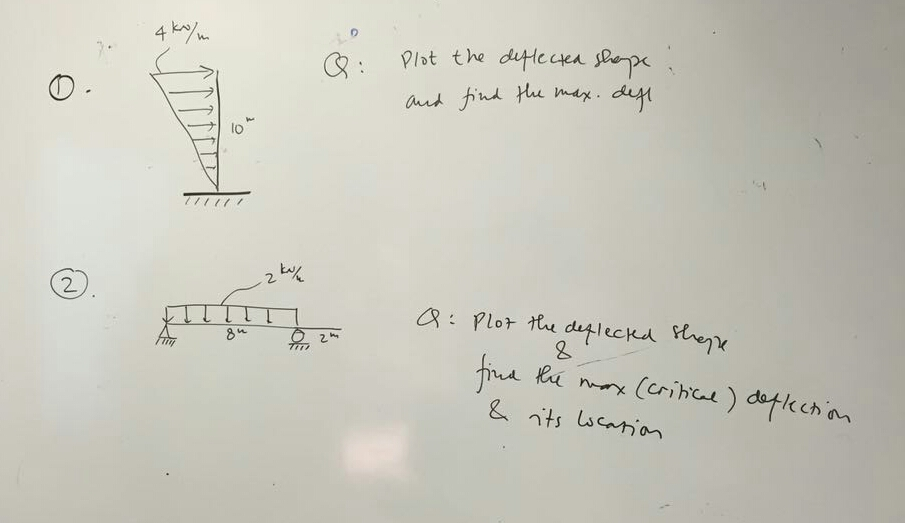 4 kN/m
①.
10 m
Q: Plot the deflected shape :
and find the max. defl
②.
2 kN/m
8 m
2 m
Q: Plot the deflected shape
&
find the max (critical) deflection
& its location